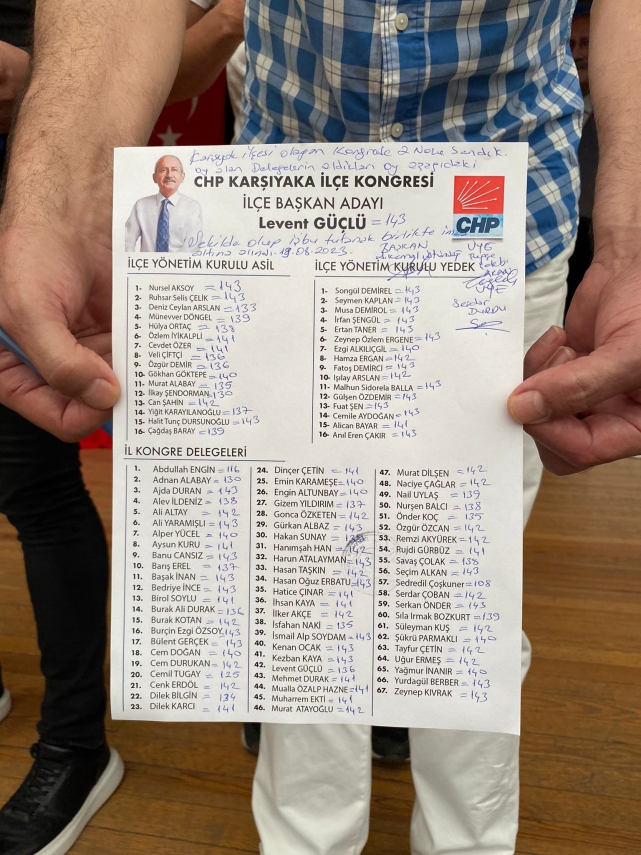 Karşıyaka ilçesi olağan Kongrede 2 Nolu Sandık.
oy alan Delegelerin aldıkları oy aşağıdaki
CHP KARŞIYAKA İLÇE KONGRESİ
İLÇE BAŞKAN ADAYI
Levent GÜÇLÜ = 143
CHP
Şekilde olup işbu tutanak birlikte imza
altına alındı. 19.08.2023
BAŞKAN
ÜYE
ÜYE
Serdar
DURDU
İLÇE YÖNETİM KURULU ASİL
1- Nursel AKSOY = 143
2- Ruhsar Selis ÇELİK = 143
3- Deniz Ceylan ARSLAN = 133
4- Münevver DÖNGEL = 139
5- Hülya ORTAÇ = 138
6- Özlem İYİKALPLİ = 141
7- Cevdet ÖZER = 141
8- Veli ÇİFTÇİ = 136
9- Özgür DEMİR = 136
10- Gökhan GÖKTEPE = 140
11- Murat ALABAY = 135
12- İlkay ŞENDORMAN = 130
13- Can ŞAHİN = 142
14- Yiğit KARAYILANOĞLU = 137
15- Halit Tunç DURSUNOĞLU = 143
16- Çağdaş BARAY = 139
İLÇE YÖNETİM KURULU YEDEK
1- Songül DEMİREL = 143
2- Seymen KAPLAN = 143
3- Musa DEMİROL = 143
4- İrfan ŞENGÜL = 143
5- Ertan TANER = 143
6- Zeynep Özlem ERGENE = 143
7- Ezgi ALKILIÇGİL = 140
8- Hamza ERGAN = 142
9- Fatoş DEMİRCİ = 143
10- Işılay ARSLAN = 142
11- Malhun Sidorela BALLA = 143
12- Gülşen ÖZDEMİR = 143
13- Fuat ŞEN = 143
14- Cemile AYDOĞAN = 143
15- Alican BAYAR = 141
16- Anıl Eren ÇAKIR = 143
İL KONGRE DELEGELERİ
1. Abdullah ENGİN = 116
2. Adnan ALABAY = 130
3. Ajda DURAN = 143
4. Alev İLDENİZ = 138
5. Ali ALTAY = 142
6. Ali YARAMIŞLI = 143
7. Alper YÜCEL = 140
8. Aysun KURU = 141
9. Banu CANSIZ = 143
10. Barış EREL = 137
11. Başak İNAN = 143
12. Bedriye İNCE = 143
13. Birol SOYLU = 141
14. Burak Ali DURAK = 136
15. Burak KOTAN = 142
16. Burçin Ezgi ÖZSOY 143
17. Bülent GERÇEK = 143
18. Cem DOĞAN = 140
19. Cem DURUKAN = 142
20. Cemil TUGAY = 125
21. Cenk ERDÖL = 142
22. Dilek BİLGİN = 134
23. Dilek KARCI = 141
24. Dinçer ÇETİN = 141
25. Emin KARAMEŞE = 140
26. Engin ALTUNBAY = 140
27. Gizem YILDIRIM = 137
28. Gonca ÖZKETEN = 142
29. Gürkan ALBAZ = 143
30. Hakan SUNAY = 138
31. Hanımşah HAN = 142
32. Harun ATALAYMAN = 143
33. Hasan TAŞKIN = 142
34. Hasan Oğuz ERBATU = 143
35. Hatice ÇINAR = 141
36. İhsan KAYA = 141
37. İlker AKÇE = 142
38. İsfahan NAKİ = 135
39. İsmail Alp SOYDAM = 143
40. Kenan OCAK = 143
41. Kezban KAYA = 143
42. Levent GÜÇLÜ = 136
43. Mehmet DURAK = 141
44. Mualla ÖZALP HAZNE = 141
45. Muharrem EKTİ = 141
46. Murat ATAYOĞLU = 142
47. Murat DİLŞEN = 142
48. Naciye ÇAĞLAR = 142
49. Nail UYLAŞ = 139
50. Nurşen BALCI = 138
51. Önder KOÇ = 135
52. Özgür ÖZCAN = 142
53. Remzi AKYÜREK = 142
54. Rujdi GÜRBÜZ = 141
55. Savaş ÇOLAK = 135
56. Seçim ALKAN = 143
57. Sedredil Çoşkuner = 108
58. Serdar ÇOBAN = 142
59. Serkan ÖNDER = 143
60. Sıla Irmak BOZKURT = 139
61. Süleyman KUŞ = 142
62. Şükrü PARMAKLI = 140
63. Tayfur ÇETİN = 142
64. Uğur ERMEŞ = 142
65. Yağmur İNANIR = 140
66. Yurdagül BERBER = 143
67. Zeynep KIVRAK = 143